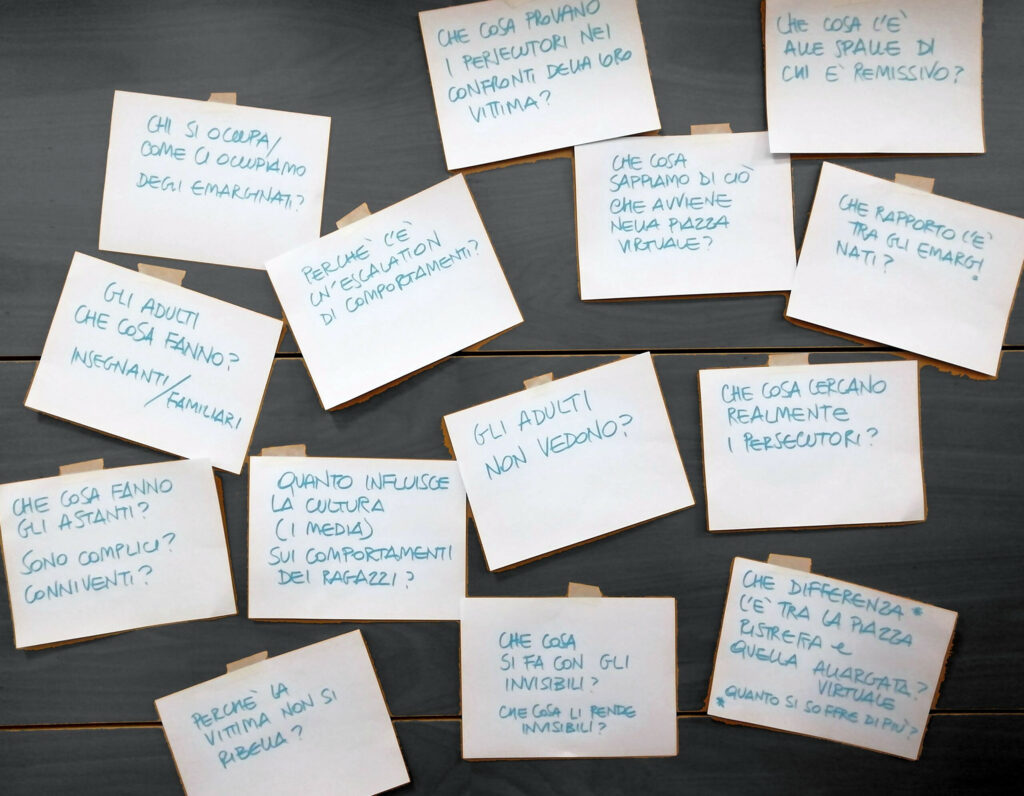 CHE COSA PROVANO
I PERSECUTORI NEI
CONFRONTI DELLA LORO
VITTIMA?
CHE COSA C'È
ALLE SPALLE DI
CHI È REMISSIVO?
CHI SI OCCUPA/
COME CI OCCUPIAMO
DEGLI EMARGINATI?
CHE COSA
SAPPIAMO DI CIÒ
CHE AVVIENE
NELLA PIAZZA
VIRTUALE?
CHE RAPPORTO C'È
TRA GLI EMARGI
NATI?
PERCHÈ C'È
UN'ESCALATION
DI COMPORTAMENTI?
GLI ADULTI
CHE COSA FANNO?
INSEGNANTI/
FAMILIARI
GLI ADULTI
NON VEDONO?
CHE COSA CERCANO
REALMENTE
I PERSECUTORI?
CHE COSA FANNO
GLI ASTANTI?
SONO COMPLICI?
CONNIVENTI?
QUANTO INFLUISCE
LA CULTURA
(I MEDIA)
SUI COMPORTAMENTI
DEI RAGAZZI?
PERCHÈ LA
VITTIMA NON SI
RIBELLA?
CHE COSA
SI FA CON GLI
INVISIBILI?
CHE COSA LI RENDE
INVISIBILI?
CHE DIFFERENZA *
C'È TRA LA PIAZZA
RISTRETTA e
QUELLA ALLARGATA?
VIRTUALE
* QUANTO SI SOFFRE DI PIÙ?